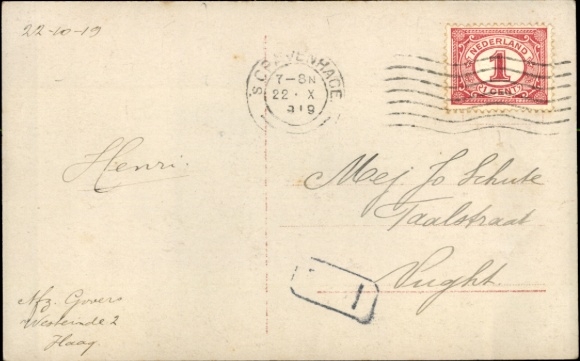 22-10-19
'S GRAVENHAGE
7-8N
22 · X
919
NEDERLAND
1
CENT
Henri.
Mej. Jo Schute
Taalstraat
Vught.
1
Afz. Govers
Westeinde 2
Haag